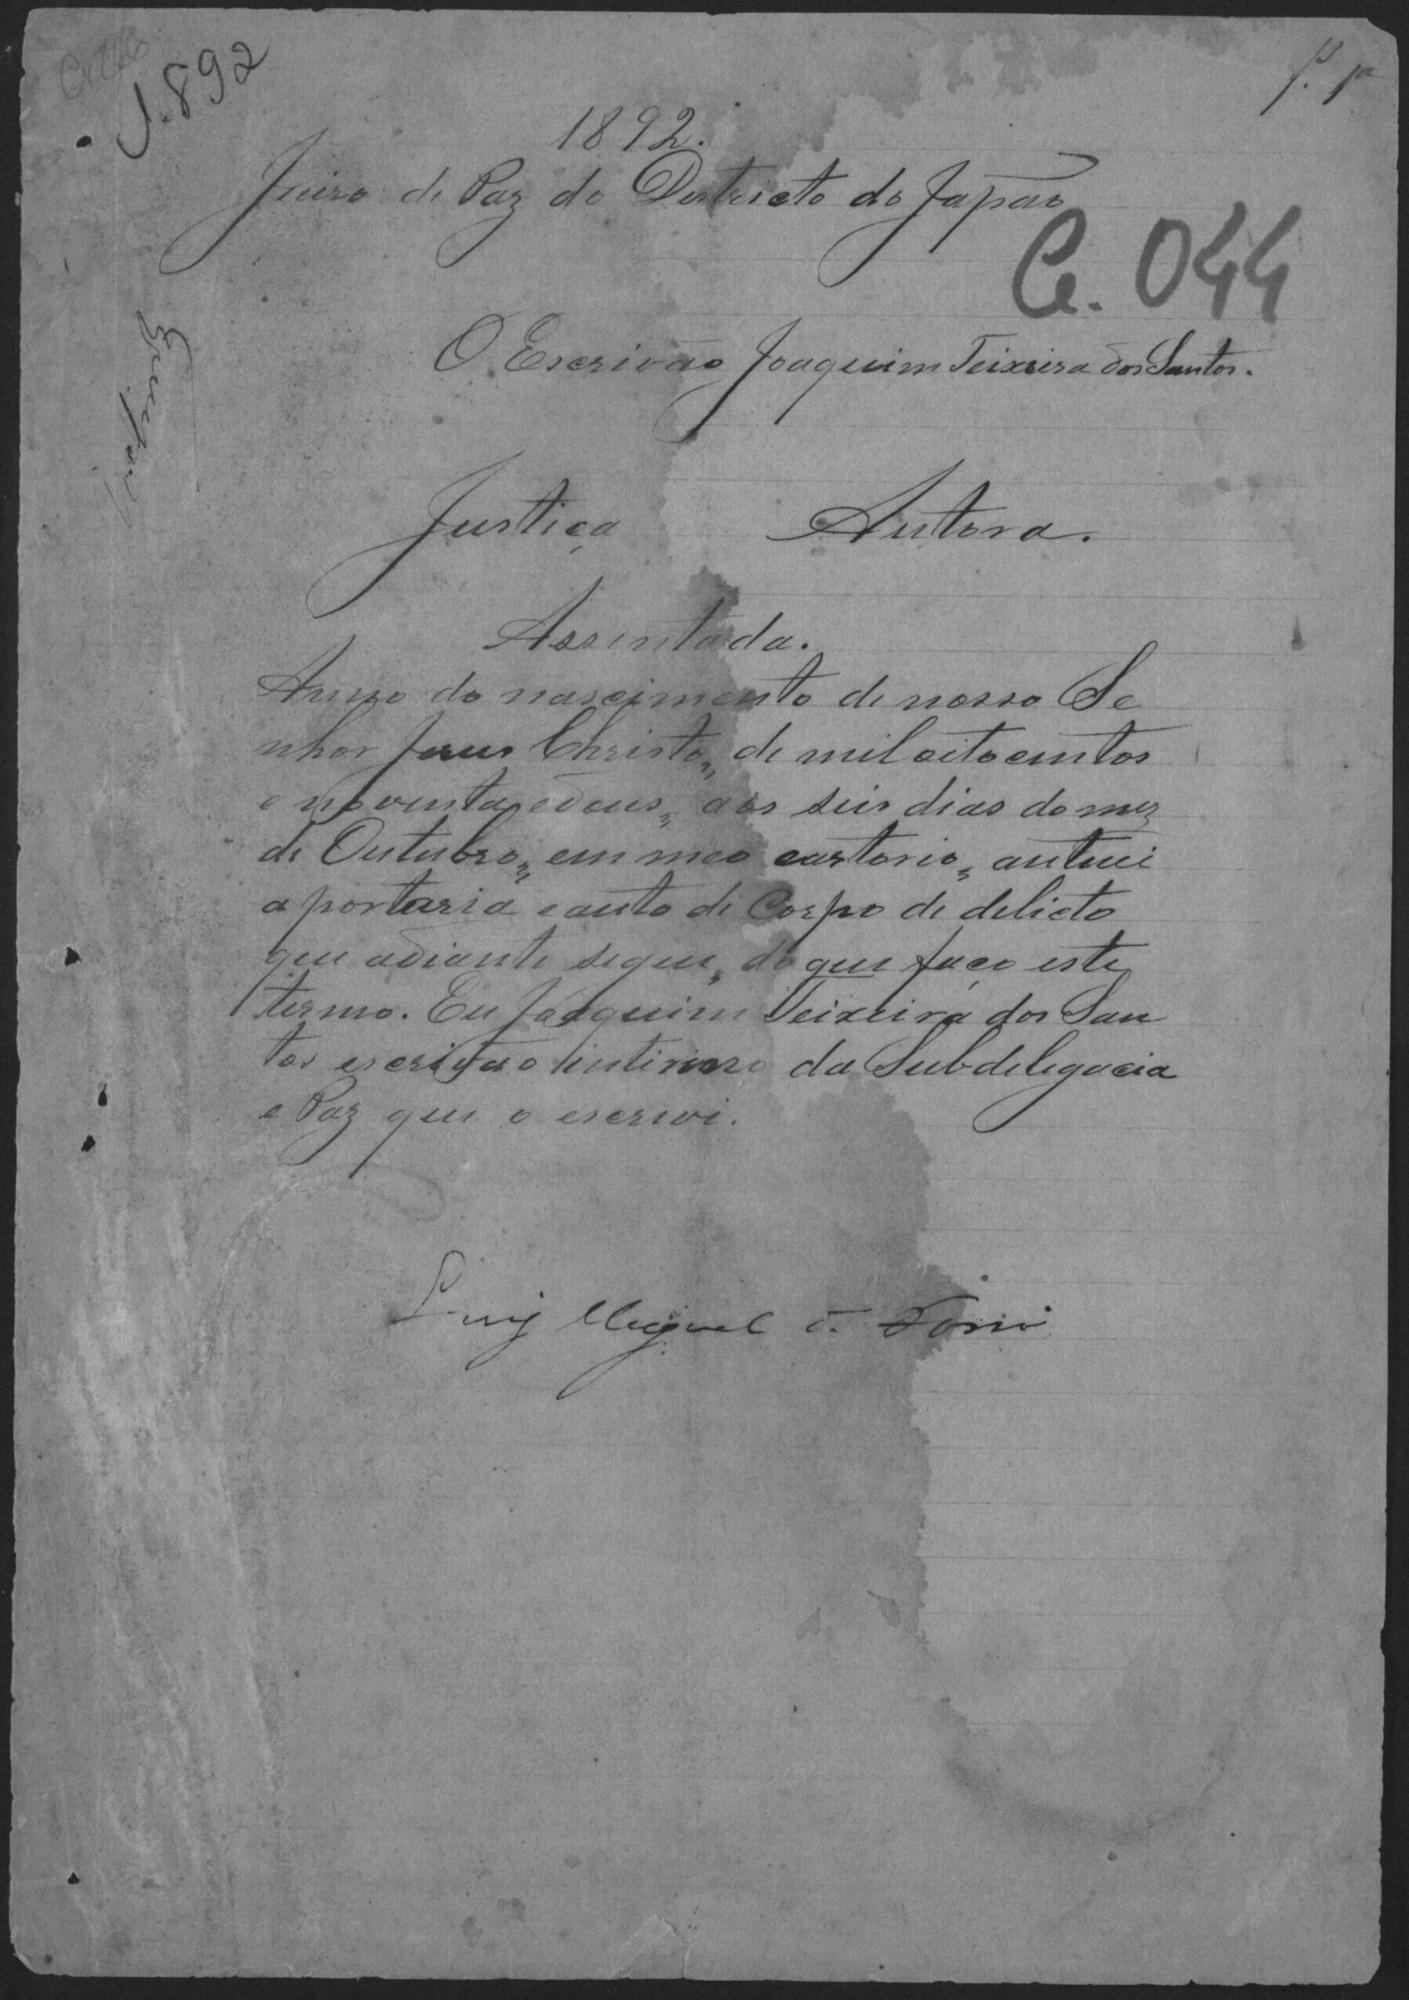 1892
f. 1ª
1892.
Juizo de Paz do Districto do Japão
Ce. 044
O Escrivão Joaquim Teixeira dos Santos.
Justiça Autora.
Assentada.
Anno do nascimento de nosso Se
nhor Jesus Christo, de mil oitocentos
e noventa e dous, aos seis dias do mez
de Outubro, em meo cartorio, autuei
a portaria e auto de Corpo de delicto
que adiante segue, do que faço este
termo. Eu Joaquim Teixeira dos San
tos escrivão interino da Subdelegacia
e Paz que o escrevi.
Luiz Miguel